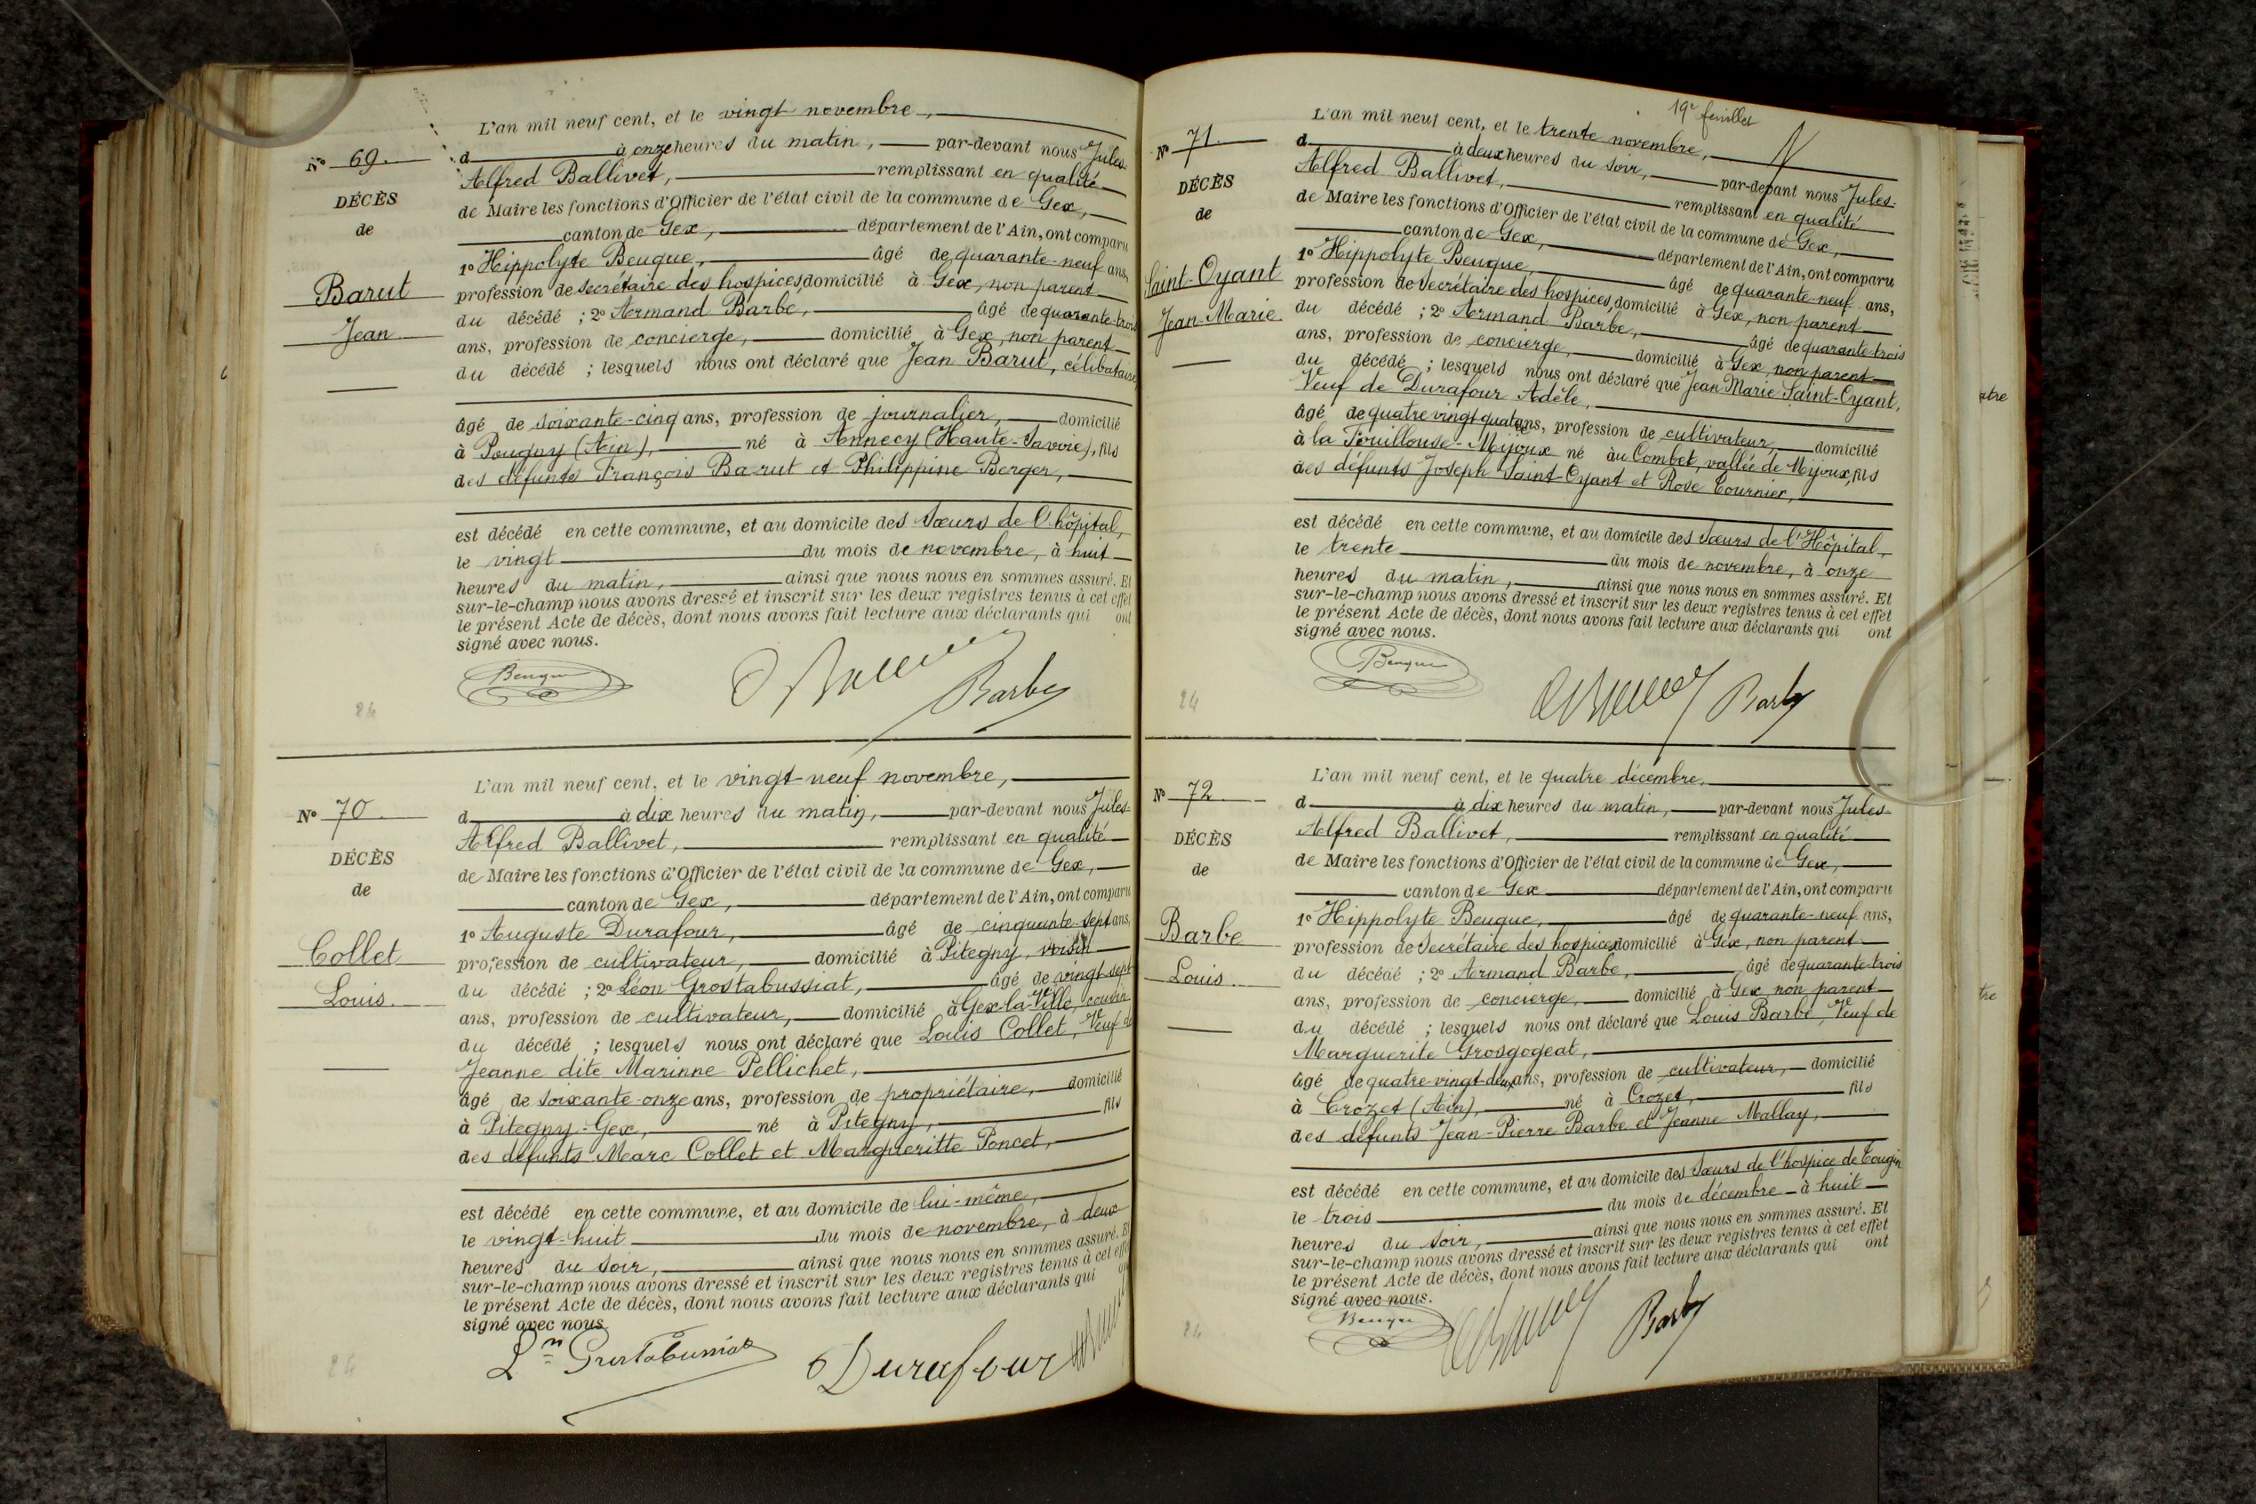 L'an mil neuf cent, et le vingt novembre,
N° 69.
d à onze heures du matin, par-devant nous Jules-
Alfred Ballivet, remplissant en qualité
DÉCÈS
de Maire les fonctions d'Officier de l'état civil de la commune de Gex,
de
canton de Gex, département de l'Ain, ont comparu
1° Hippolyte Beuque, âgé de quarante-neuf ans,
Barut
profession de secrétaire des hospices, domicilié à Gex, non parent
du décédé ; 2° Armand Barbe, âgé de quarante-trois
Jean
ans, profession de concierge, domicilié à Gex, non parent
du décédé ; lesquels nous ont déclaré que Jean Barut, célibataire,
âgé de soixante-cinq ans, profession de journalier, domicilié
à Pougny (Ain), né à Annecy (Haute-Savoie), fils
des défunts François Barut et Philippine Berger,
est décédé en cette commune, et au domicile des Sœurs de l'hôpital,
le vingt du mois de novembre, à huit
heures du matin, ainsi que nous nous en sommes assuré. Et
sur-le-champ nous avons dressé et inscrit sur les deux registres tenus à cet effet
le présent Acte de décès, dont nous avons fait lecture aux déclarants qui ont
signé avec nous.
Beuque
Barbe
24
L'an mil neuf cent, et le vingt-neuf novembre,
N° 70.
d à dix heures du matin, par-devant nous Jules-
Alfred Ballivet, remplissant en qualité
DÉCÈS
de Maire les fonctions d'Officier de l'état civil de la commune de Gex,
de
canton de Gex, département de l'Ain, ont comparu
1° Auguste Durafour, âgé de cinquante-sept ans,
Collet
profession de cultivateur, domicilié à Pitegny, voisin
du décédé ; 2° Léon Grostabussiat, âgé de vingt-sept
Louis.
ans, profession de cultivateur, domicilié à Gex-la-Ville, cousin
du décédé ; lesquels nous ont déclaré que Louis Collet, Veuf de
Jeanne dite Marinne Pellichet,
âgé de soixante-onze ans, profession de propriétaire, domicilié
à Pitegny-Gex, né à Pitegny, fils
des défunts Marc Collet et Margueritte Poncet,
est décédé en cette commune, et au domicile de lui-même,
le vingt-huit du mois de novembre, à deux
heures du soir, ainsi que nous nous en sommes assuré. Et
sur-le-champ nous avons dressé et inscrit sur les deux registres tenus à cet effet
le présent Acte de décès, dont nous avons fait lecture aux déclarants qui ont
signé avec nous.
Durafour
24
19e feuillet
L'an mil neuf cent, et le trente novembre,
N° 71.
d à deux heures du soir, par-devant nous Jules-
Alfred Ballivet, remplissant en qualité
DÉCÈS
de Maire les fonctions d'Officier de l'état civil de la commune de Gex,
de
canton de Gex, département de l'Ain, ont comparu
1° Hippolyte Beuque, âgé de quarante-neuf ans,
Saint-Oyant
profession de Secrétaire des hospices, domicilié à Gex, non parent
du décédé ; 2° Armand Barbe, âgé de quarante-trois
Jean-Marie.
ans, profession de concierge, domicilié à Gex, non parent
du décédé ; lesquels nous ont déclaré que Jean Marie Saint-Oyant,
Veuf de Durafour Adèle,
âgé de quatre vingt quatre ans, profession de cultivateur, domicilié
à la Fouillouse-Mijoux né au Combet, vallée de Mijoux, fils
des défunts Joseph Saint-Oyant et Rose Tournier,
est décédé en cette commune, et au domicile des Sœurs de l'Hôpital,
le trente du mois de novembre, à onze
heures du matin, ainsi que nous nous en sommes assuré. Et
sur-le-champ nous avons dressé et inscrit sur les deux registres tenus à cet effet
le présent Acte de décès, dont nous avons fait lecture aux déclarants qui ont
signé avec nous.
Beuque
Barbe
24
L'an mil neuf cent, et le quatre décembre,
N° 72.
d à dix heures du matin, par-devant nous Jules-
Alfred Ballivet, remplissant en qualité
DÉCÈS
de Maire les fonctions d'Officier de l'état civil de la commune de Gex,
de
canton de Gex département de l'Ain, ont comparu
1° Hippolyte Beuque, âgé de quarante-neuf ans,
Barbe
profession de Secrétaire des hospices, domicilié à Gex, non parent
du décédé ; 2° Armand Barbe, âgé de quarante-trois
Louis.
ans, profession de concierge, domicilié à Gex, non parent
du décédé ; lesquels nous ont déclaré que Louis Barbe, Veuf de
Marguerite Grosgogeat,
âgé de quatre-vingt-deux ans, profession de cultivateur, domicilié
à Crozet (Ain), né à Crozet, fils
des défunts Jean-Pierre Barbe et Jeanne Mallay,
est décédé en cette commune, et au domicile des Sœurs de l'hospice de Tougin
le trois du mois de décembre à huit
heures du soir, ainsi que nous nous en sommes assuré. Et
sur-le-champ nous avons dressé et inscrit sur les deux registres tenus à cet effet
le présent Acte de décès, dont nous avons fait lecture aux déclarants qui ont
signé avec nous.
Beuque
Barbe
24